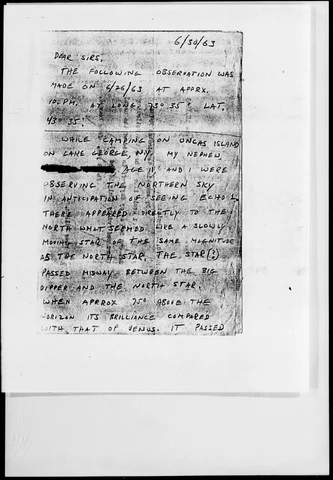 6/30/63
DEAR SIRS,
THE FOLLOWING OBSERVATION WAS
MADE ON 6/26/63 AT APPRX.
10 PM. AT LONG. 73° 35' LAT.
43° 35'.
WHILE CAMPING ON UNCAS ISLAND
ON LAKE GEORGE, NY. MY NEPHEW,
AGE 11 AND I WERE
OBSERVING THE NORTHERN SKY
IN ANTICIPATION OF SEEING ECHO I,
THERE APPEARED DIRECTLY TO THE
NORTH WHAT SEEMED LIKE A SLOWLY
MOVING STAR OF THE SAME MAGNITUDE
AS THE NORTH STAR. THE STAR(?)
PASSED MIDWAY BETWEEN THE BIG
DIPPER AND THE NORTH STAR.
WHEN APPROX 75° ABOVE THE
HORIZON ITS BRILLIANCE COMPARED
WITH THAT OF VENUS. IT PASSED